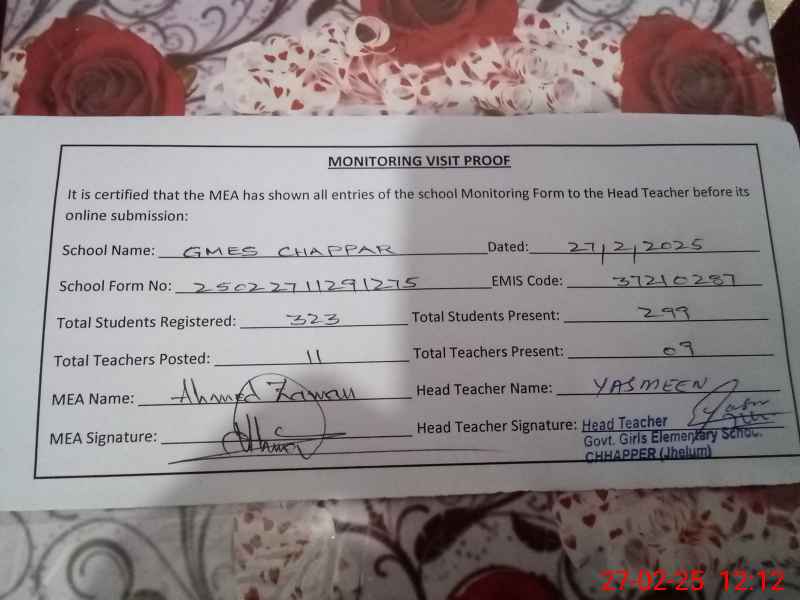 MONITORING VISIT PROOF
It is certified that the MEA has shown all entries of the school Monitoring Form to the Head Teacher before its
online submission:
School Name: GMES CHAPPAR Dated: 27/2/2025
School Form No: 25022711291275 EMIS Code: 37210287
Total Students Registered: 323 Total Students Present: 299
Total Teachers Posted: 11 Total Teachers Present: 09
MEA Name: Ahmed Zawan Head Teacher Name: YASMEEN
MEA Signature: Head Teacher Signature: Head Teacher
Govt. Girls Elementary School
CHHAPPER (Jhelum)
27-02-25 12:12